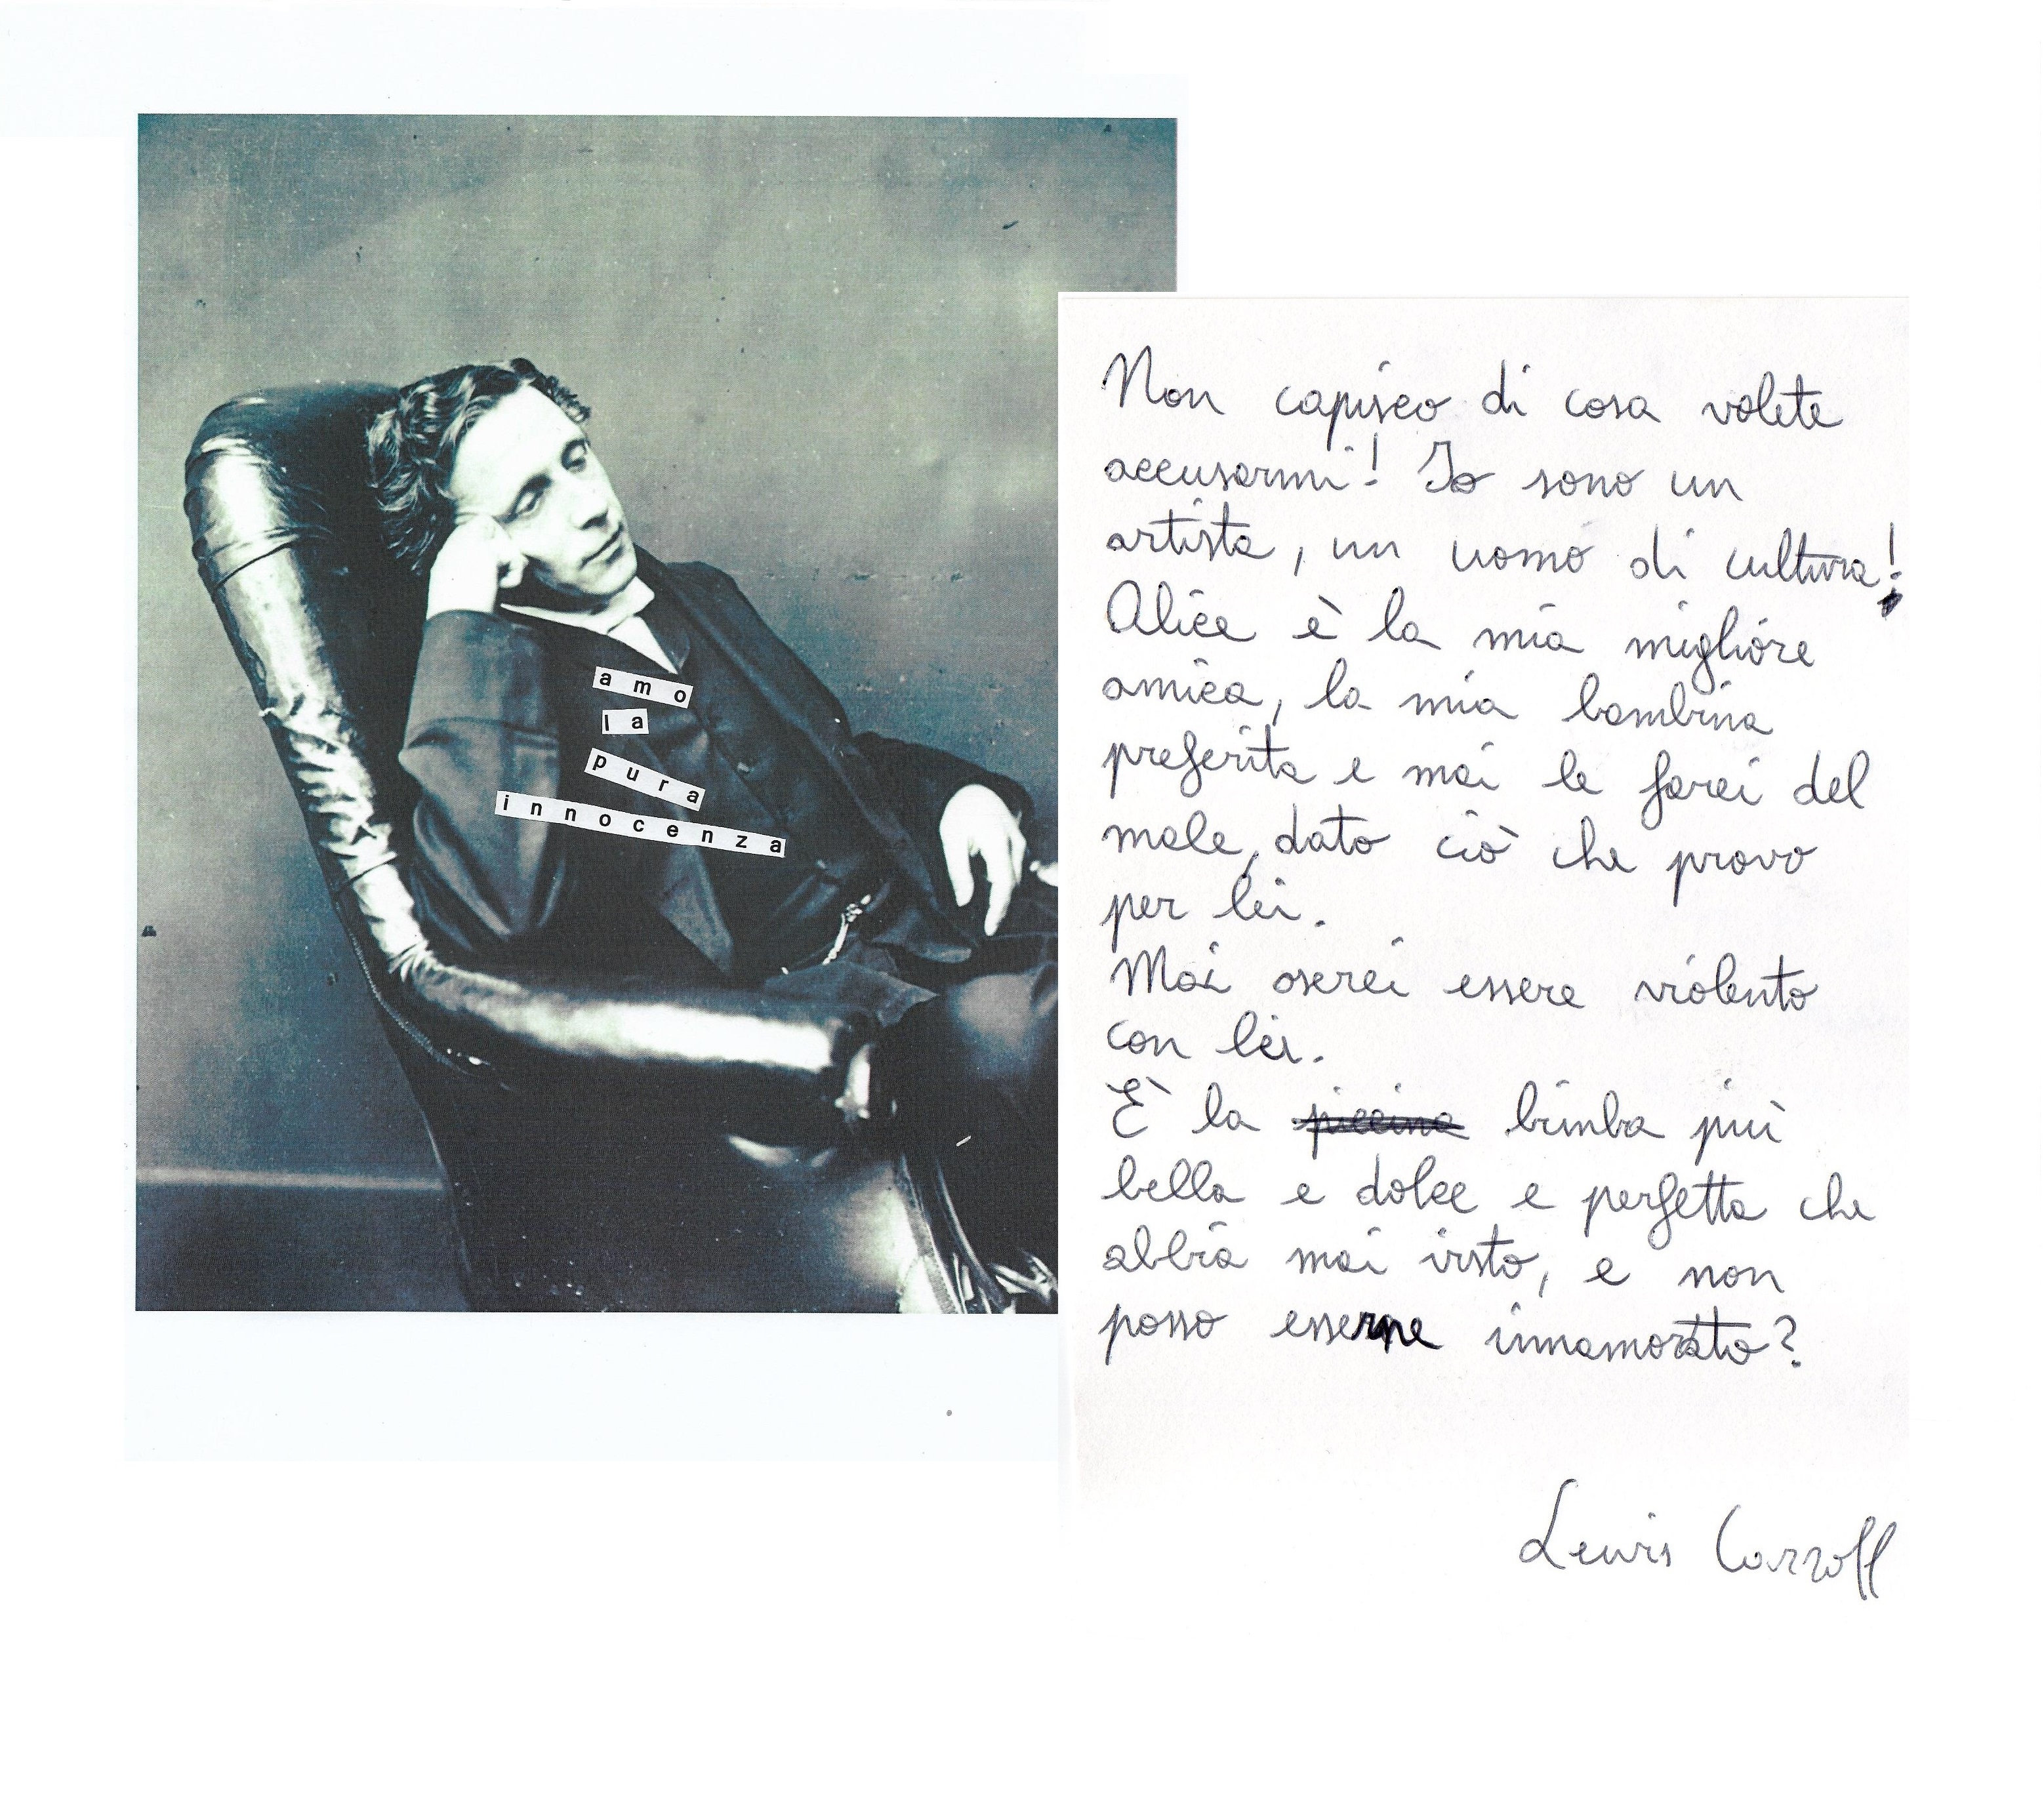 amo
la
pura
innocenza
Non capisco di cosa volete
accusarmi! Io sono un
artista, un uomo di cultura!
Alice è la mia migliore
amica, la mia bambina
preferita e mai le farei del
male, dato ciò che provo
per lei.
Mai oserei essere violento
con lei.
È la piccina bimba più
bella e dolce e perfetta che
abbia mai visto, e non
posso esserne innamorato?
Lewis Carroll